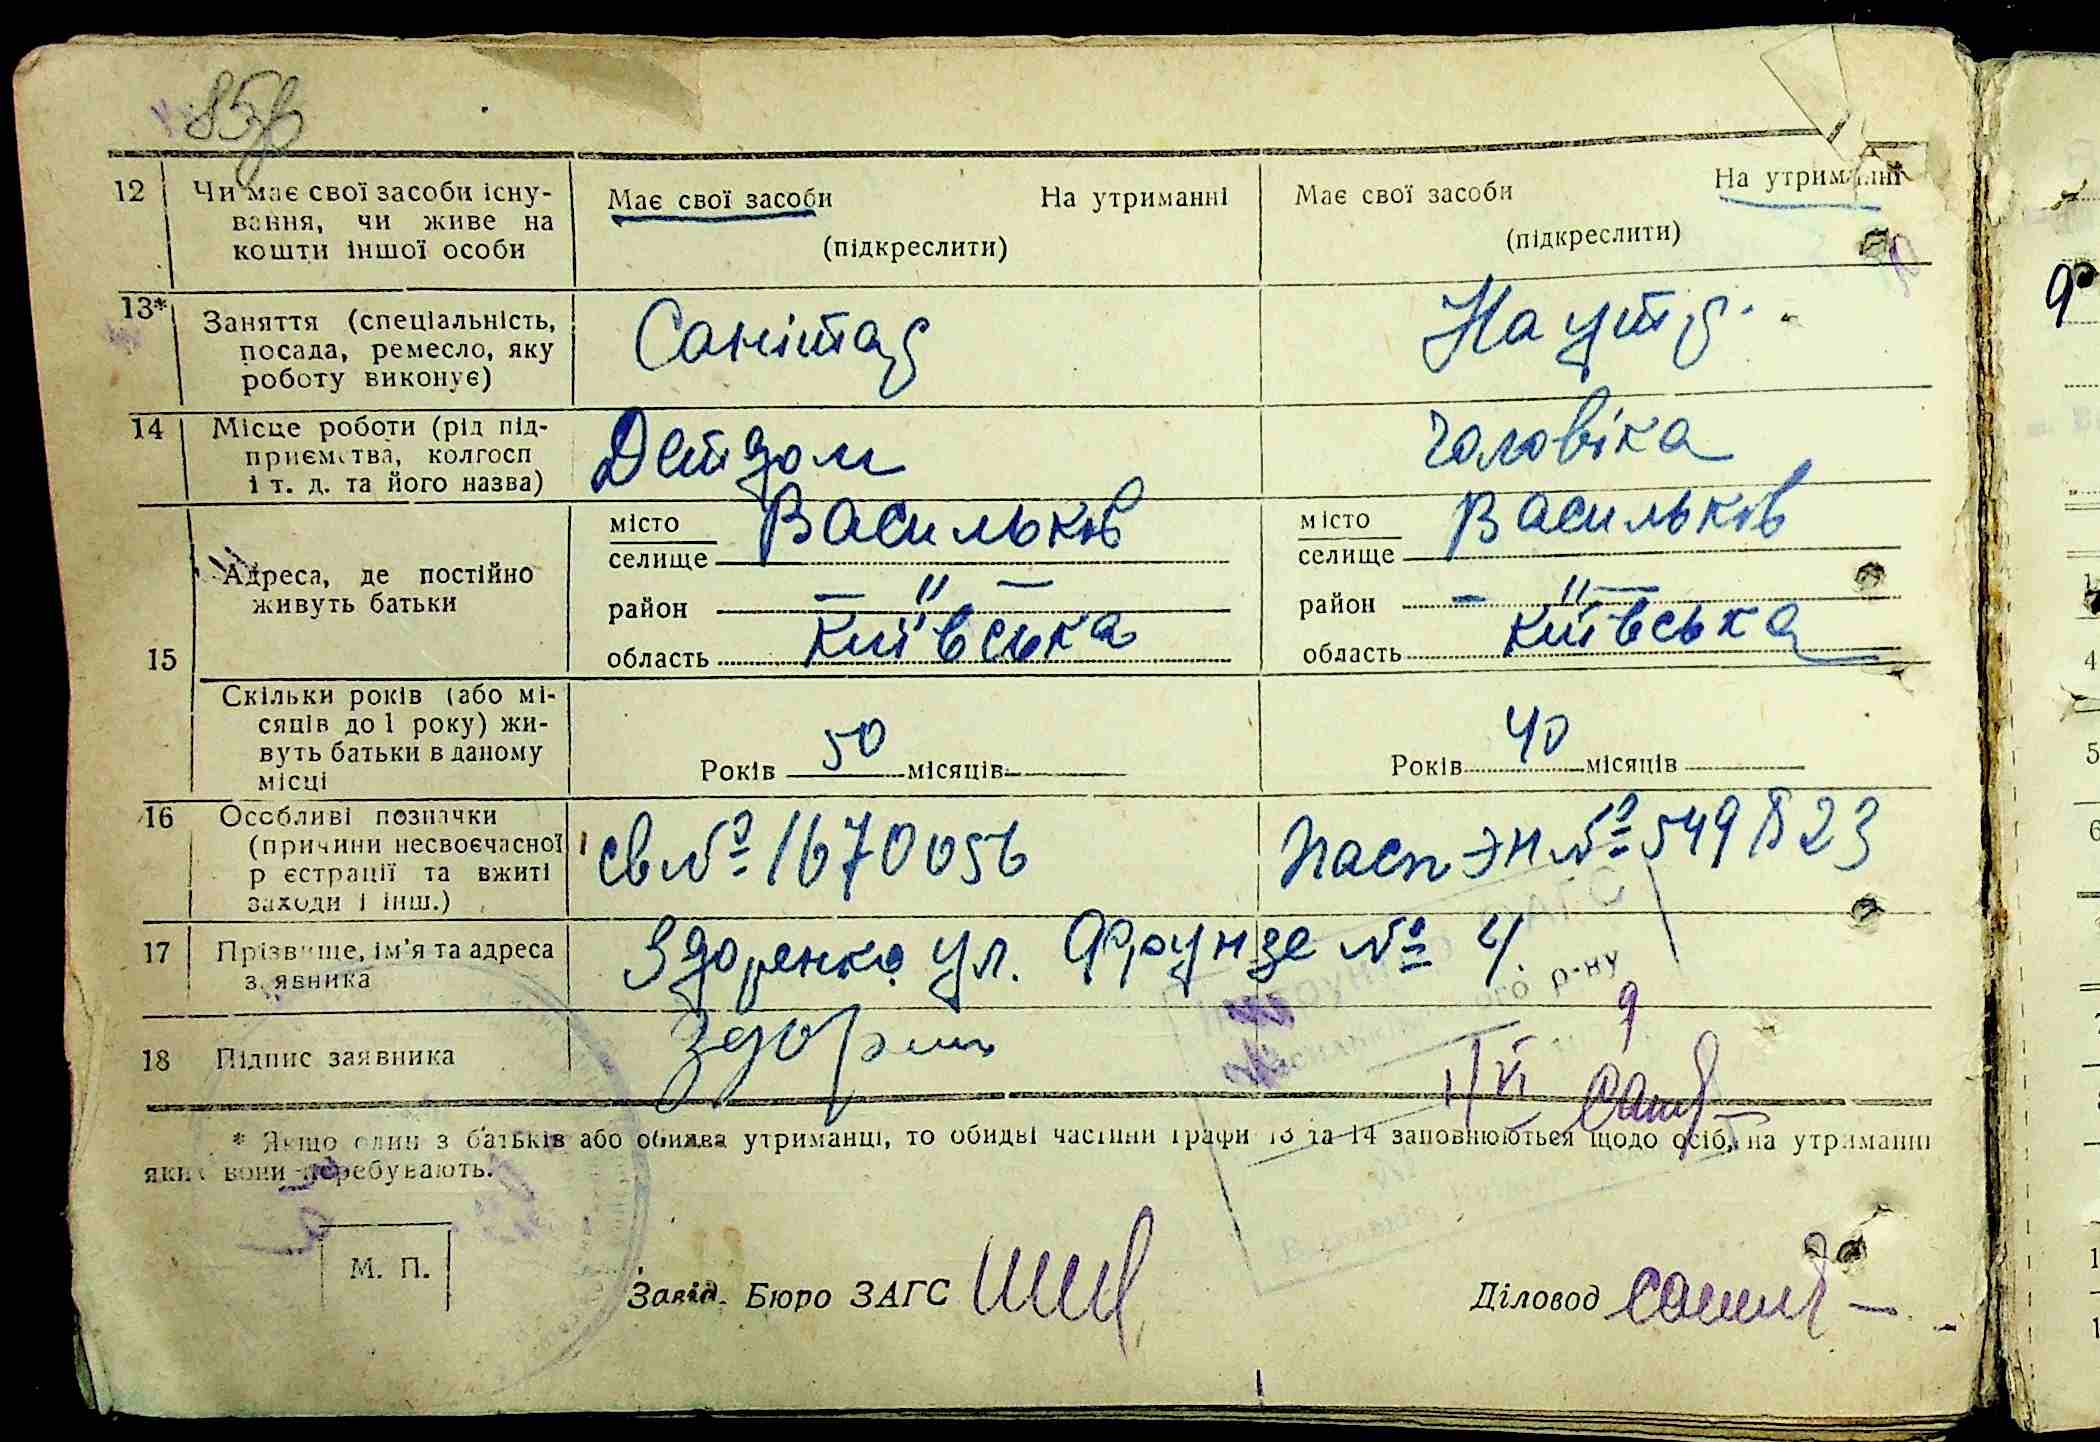 85
12 Чи має свої засоби існу-
вання, чи живе на
кошти іншої особи
Має свої засоби На утриманні
(підкреслити)
Має свої засоби На утриманні
(підкреслити)
13* Заняття (спеціальність,
посада, ремесло, яку
роботу виконує)
Санітар
На утр.
14 Місце роботи (рід під-
приємства, колгосп
і т. д. та його назва)
Дитдом
Чоловіка
15 Адреса, де постійно
живуть батьки
місто Васильків
селище
район — " —
область Київська
місто Васильків
селище
район — " —
область Київська
Скільки років (або мі-
сяців до 1 року) жи-
вуть батьки в даному
місці
Років 50 місяців
Років 40 місяців
16 Особливі позначки
(причини несвоєчасної
реєстрації та вжиті
заходи і інш.)
св № 1670056
Пасп ЭН № 549
17 Прізвище, ім'я та адреса
заявника
Здоренко ул. Фрунзе № 4
18 Підпис заявника
* Якщо один з батьків або обидва утриманці, то обидві частини графи 13 та 14 заповнюються щодо осіб, на утриманні
яких вони перебувають.
М. П.
Завід. Бюро ЗАГС
Діловод